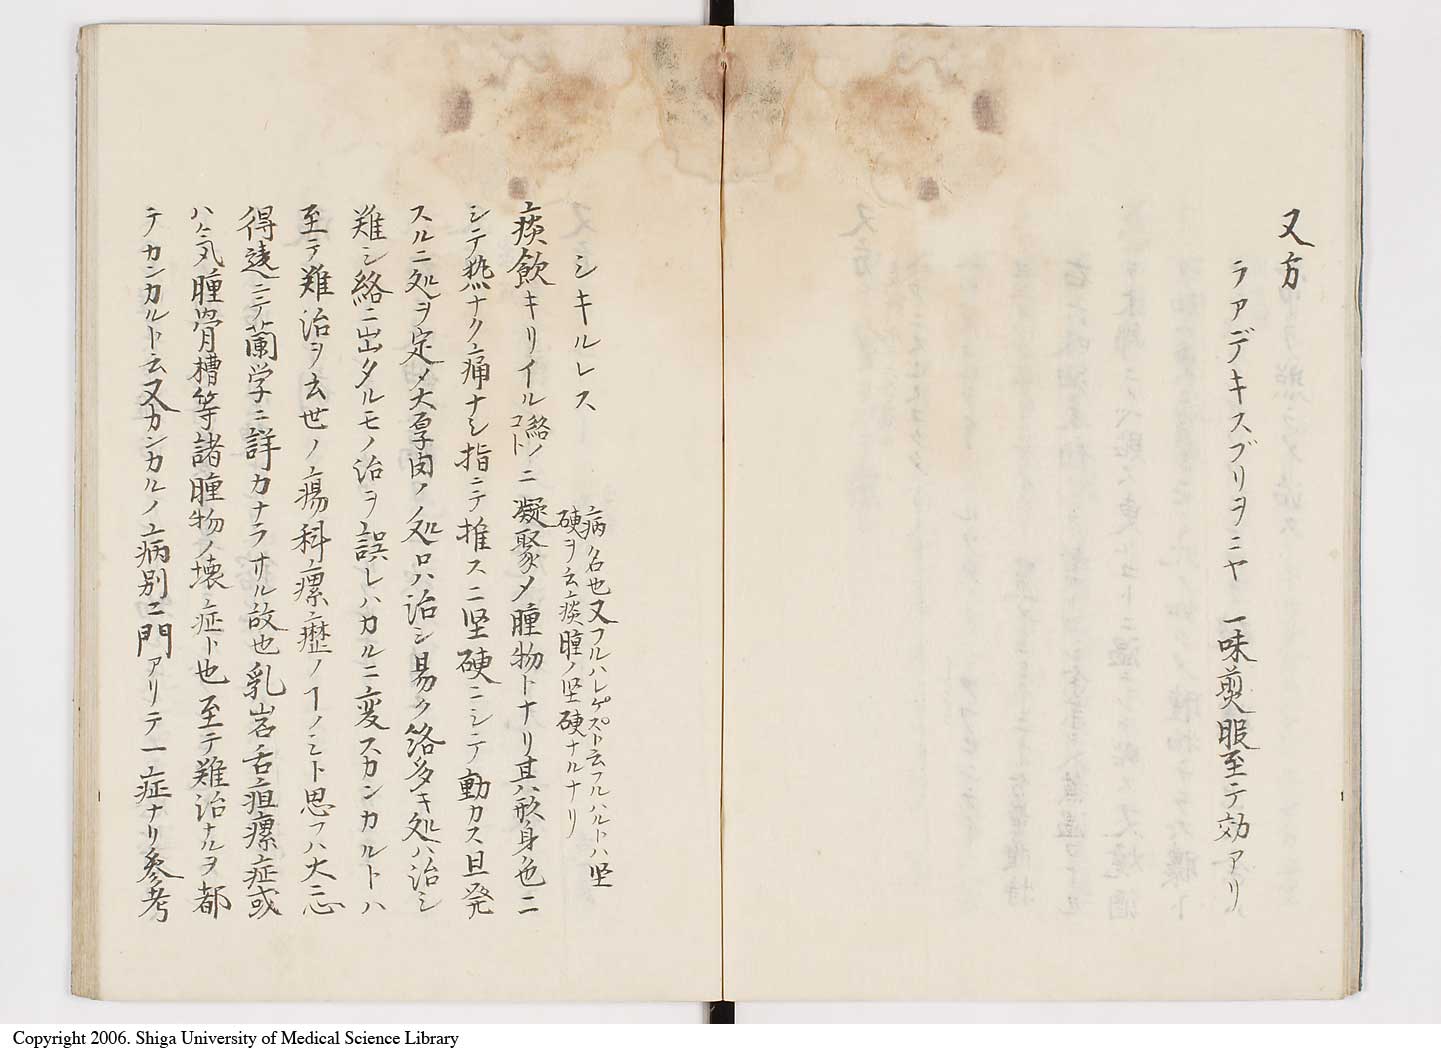 又方
ラアデキスブリヲニヤ 一味煎服至テ効アリ
シキルレス
病名也又フルハレゲスプト云フルハルトハ坚
硬ヲ云痰腫ノ坚硬ナルナリ
痰飲キリイル絡ノコトニ凝聚〆腫物トナリ其形身色ニ
シテ熱ナク痛ナシ指ニテ推スニ坚硬ニシテ動カス且発
スルニ処ヲ定〆大厚肉ノ処ロハ治シ易ク絡多キ処ハ治シ
難シ絡ニ出タルモノ治ヲ誤レハカルニ変スカンカルトハ
至テ難治ヲ云世ノ瘍科瘰癧ノ𬼀ノミト思フハ大ニ心
得違ニテ蘭学ニ詳カナラサル故也乳岩舌疽瘰症或
ハ気腫骨槽等諸腫物ノ壊症ト也至テ難治ナルヲ都
テカンカルト云又カンカルノ病別ニ門アリテ一症ナリ参考
Copyright 2006. Shiga University of Medical Science Library